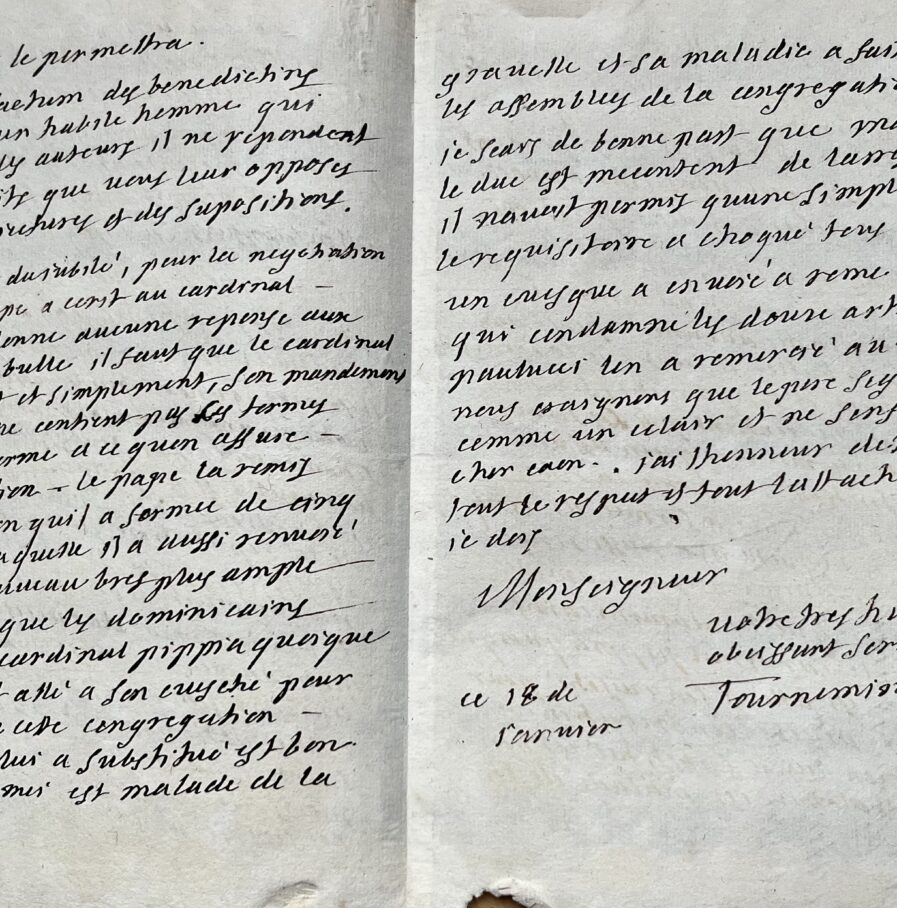 le permettra.
factum des benedictins
un habile homme qui
les auteurs il ne répondent
faits que vous leur opposes
et des supositions.
du jubilé, pour la negotiation
pape a ecrit au cardinal –
donne aucune reponse aux
bulle il faut que le cardinal
et simplement, son mandement
ne contient pas les termes
a ce quon assure –
– le pape la remis
qu'il a formee de cinq
laquelle il a aussi renvoié
nouveau bref plus ample
que les dominicains
cardinal pippia quoique
allé a son evesché pour
cette congregation –
lui a substitué est bon
est malade de la
gravelle et sa maladie a fait
les assemblées de la congregati
je scavs de bonne part que
le duc est mecontent de larr
il navoit permis quune simpl
le requisitoire a choqué tous
un evesque a envoié a rome
qui condamne les douze art
paulucci len a remercié au
nous craignons que le pere
comme un eclair et ne
cher caen. . j'ai lhonneur de
tout le respect et tout lattach
je dois
Monseigneur
votre tres hu
obeissant ser
Tournemin
ce 18 de
Janvier